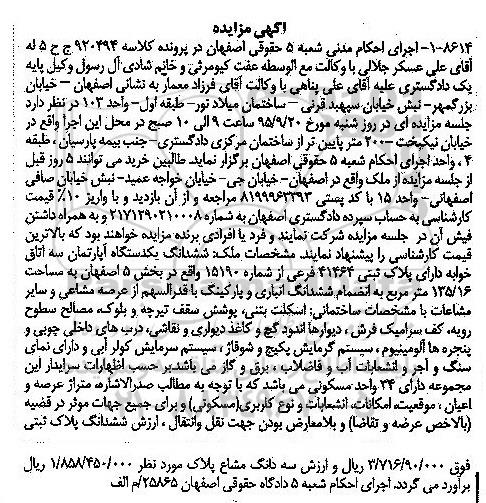 آگهی مزایده
۸۶۱۴-۱- اجرای احکام مدنی شعبه ۵ حقوقی اصفهان در پرونده کلاسه ۹۲۰۴۹۴ ج ح ۵ له
آقای علی عسکر جلالی با وکالت مع الوسطه عفت کیومرثی و خانم شادی آل رسول وکیل پایه
یک دادگستری علیه آقای علی پناهی با وکالت آقای فرزاد معمار به نشانی اصفهان – خیابان
بزرگمهر- نبش خیابان سپهبد قرنی – ساختمان میلاد نور- طبقه اول- واحد ۱۰۳ در نظر دارد
جلسه مزایده ای در روز شنبه مورخ ۹۵/۹/۲۰ ساعت ۹ الی ۱۰ صبح در محل این اجرا واقع در
خیابان نیکبخت- ۲۰۰ متر پایین تر از ساختمان مرکزی دادگستری- جنب بیمه پارسیان ، طبقه
۴ ، واحد اجرای احکام شعبه ۵ حقوقی اصفهان برگزار نماید. طالبین خرید می توانند ۵ روز قبل
از جلسه مزایده از ملک واقع در اصفهان- خیابان جی- خیابان خواجه عمید- نبش خیابان صافی
اصفهانی- واحد ۱۵ با کد پستی ۸۱۹۹۹۶۳۳۹۳ مراجعه و از آن بازدید و با واریز ۱۰٪ قیمت
کارشناسی به حساب سپرده دادگستری اصفهان به شماره ۲۱۷۱۲۹۰۲۱۰۰۰۸ و به همراه داشتن
فیش آن در جلسه مزایده شرکت نمایند و فرد یا افرادی برنده مزایده خواهند بود که بالاترین
قیمت کارشناسی را پیشنهاد نمایند. مشخصات ملک: ششدانگ یکدستگاه آپارتمان سه اتاق
خوابه دارای پلاک ثبتی ۴۱۴۶۴ فرعی از شماره ۱۵۱۹۰ واقع در بخش ۵ اصفهان به مساحت
۱۳۵/۱۶ متر مربع به انضمام ششدانگ انباری و پارکینگ با قدرالسهم از عرصه مشاعی و سایر
مشاعات با مشخصات ساختمانی: اسکلت بتنی، پوشش سقف تیرچه و بلوک، مصالح سطوح
رویه، کف سرامیک فرش ، دیوارها اندود گچ و کاغذ دیواری و نقاشی، درب های داخلی چوبی و
پنجره ها آلومینیوم ، سیستم گرمایش پکیج و شوفاژ ، سیستم سرمایش کولر آبی و دارای نمای
سنگ و آجر و انشعابات آب و فاضلاب ، برق و گاز می باشد.بر حسب اظهارات سرایدار این
مجموعه دارای ۳۴ واحد مسکونی می باشد که با توجه به مطالب صدرالاشاره متراژ عرصه و
اعیان ، موقعیت، امکانات، انشعابات و نوع کاربری(مسکونی) و برای جمیع جهات موثر در قضیه
(بالاخص عرضه و تقاضا) و بلامعارض بودن جهت نقل وانتقال ، ارزش ششدانگ پلاک ثبتی
فوق ۳/۷۱۶/۹۰۰/۰۰۰ ریال و ارزش سه دانگ مشاع پلاک مورد نظر ۱/۸۵۸/۴۵۰/۰۰۰ ریال
برآورد می گردد. اجرای احکام شعبه ۵ دادگاه حقوقی اصفهان ۲۵۸۶۵/م الف